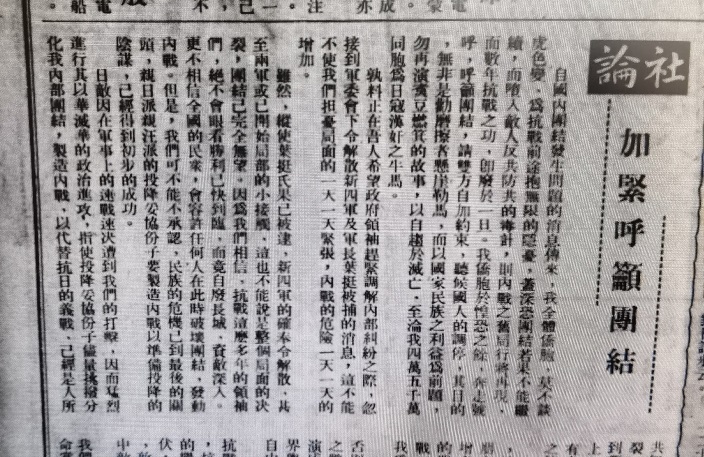 社論
加緊呼籲團結
自國內團結發生問題的消息傳來，我全體僑胞，莫不談
虎色變，爲抗戰前途抱無限的隱憂，蓋深恐團結若果不能繼
續，而墮入敵人反共防共的毒計，則內戰之舊局行將再現，
而數年抗戰之功，卽廢於一旦。我僑胞於惶恐之餘，奔走號
呼，呼籲團結，請雙方自加約束，聽候國人的調停，其目的
，無非是勸磨擦者懸岸勒馬，而以國家民族之利益爲前題，
勿再演豆燃萁的故事，以自趨於滅亡，至淪我四萬五千萬
同胞爲日寇漢奸之牛馬。
孰料正在吾人希望政府領袖趕緊調解內部糾紛之際，忽
接到軍委會下令解散新四軍及軍長葉挺被捕的消息，這不能
不使我們担憂局面的一天一天緊張，內戰的危險一天一天的
增加。
雖然，縱使葉挺氏果已被逮，新四軍的確奉令解散，甚
至兩軍或已開始局部的小接觸，這也不能說是整個局面的決
裂，團結已完全無望。因爲我們相信，抗戰這麼多年的領袖
們，絕不會眼看勝利已快到臨，而竟自廢長城，資敵深入。
更不相信全國的民衆，會容許任何人在此時破壞團結，發動
內戰。但是，我們可不能不承認，民族的危機已到最後的關
頭，親日派親汪派的投降妥協份子要製造內戰以準備投降的
陰謀，已經得到初步的成功。
日敵因在軍事上的速戰速決遭到我們的打擊，因而猛烈
進行其以華滅華的政治進攻，指使投降妥協份子儘量挑撥分
化我內部團結，製造內戰，以代替抗日的義戰，已經是人所